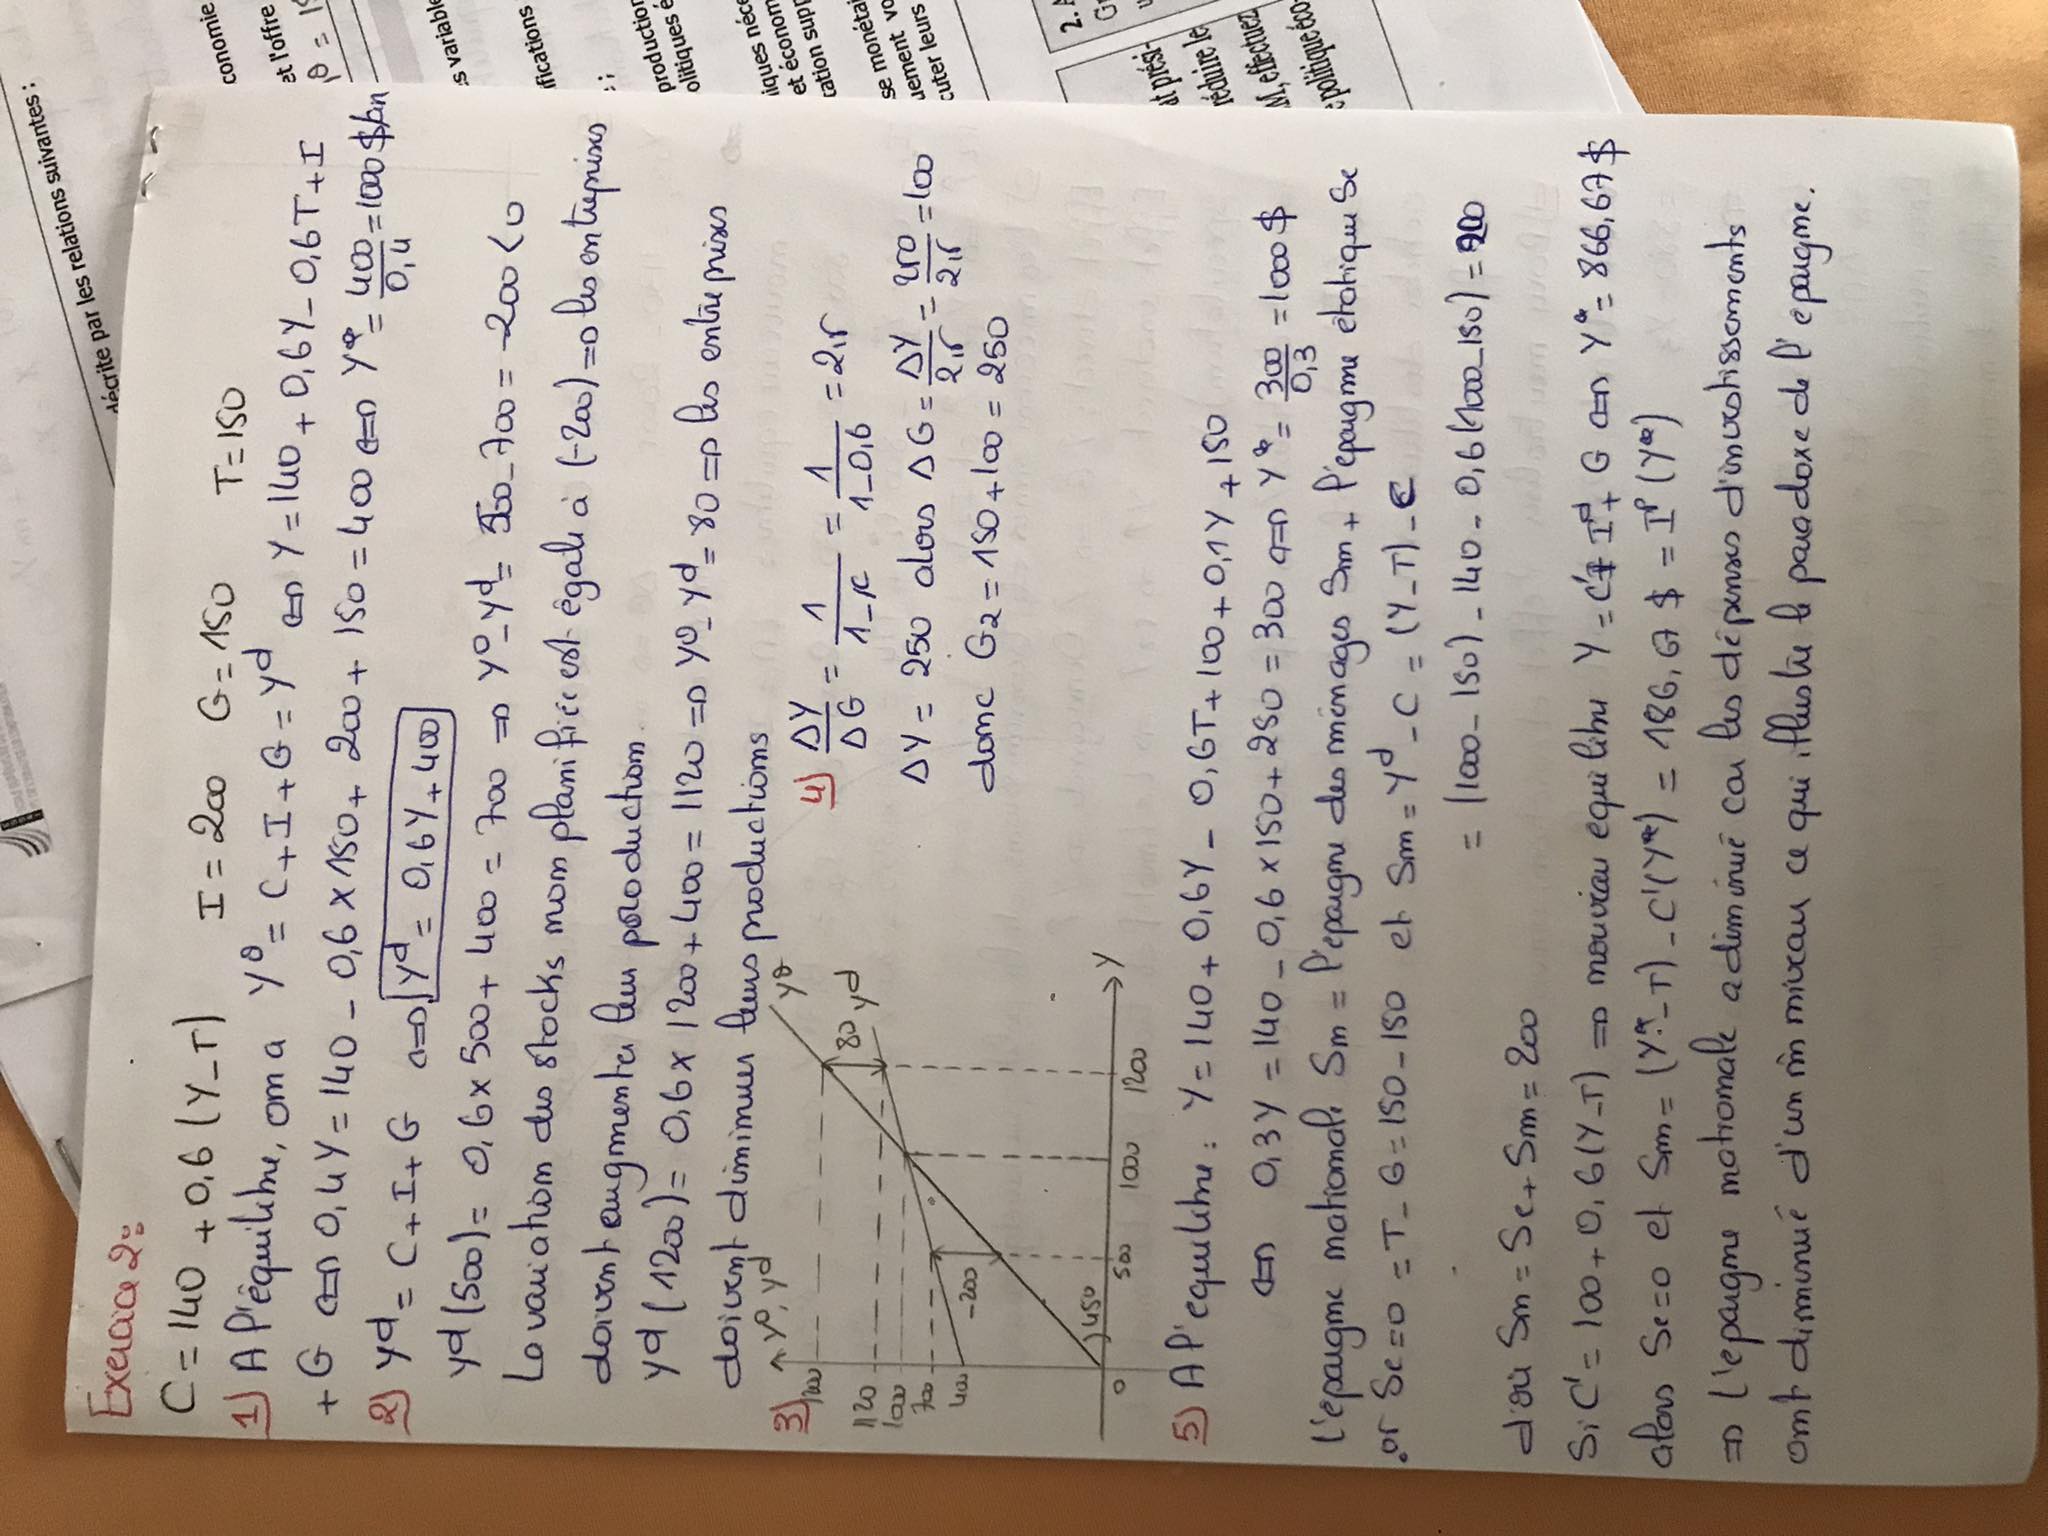 décrite par les relations suivantes :
Exercice 2:
C = 140 + 0,6 (Y - T) I = 200 G = 150 T = 150
1) A l'équilibre, on a Y° = C + I + G = Y^d ⇔ Y = 140 + 0,6Y - 0,6T + I
+ G ⇔ 0,4Y = 140 - 0,6 × 150 + 200 + 150 = 400 ⇔ Y* = 400/0,4 = 1000 $/an
2) Y^d = C + I + G ⇔ Y^d = 0,6Y + 400
Y^d (500) = 0,6 × 500 + 400 = 700 ⇒ Y° - Y^d = 500 - 700 = -200 < 0
La variation des stocks non planifiée est égale à (-200) ⇒ les entreprises
doivent augmenter leur production.
Y^d (1200) = 0,6 × 1200 + 400 = 1120 ⇒ Y° - Y^d = 80 ⇒ les entreprises
doivent diminuer leurs productions
3) Y°, Y^d
Y°
1200
80
Y^d
1120
1000
700
400
-200
45°
0 500 1000 1200 Y
4) ΔY/ΔG = 1/(1-c) = 1/(1-0,6) = 2,5
ΔY = 250 alors ΔG = ΔY/2,5 = 250/2,5 = 100
donc G2 = 150 + 100 = 250
5) A l'equilibre : Y = 140 + 0,6Y - 0,6T + 100 + 0,1Y + 150
⇔ 0,3Y = 140 - 0,6 × 150 + 250 = 300 ⇔ Y* = 300/0,3 = 1000 $
L'épargne nationale Sn = l'épargne des ménages Sm + l'épargne étatique Se
or Se = 0 = T - G = 150 - 150 et Sm = Y^d - C = (Y - T) - C
= (1000 - 150) - 140 - 0,6 (1000 - 150) = 200
d'où Sn = Se + Sm = 200
Si C' = 100 + 0,6 (Y - T) ⇒ nouveau equilibre Y = C' + I^d + G ⇔ Y* = 866,67 $
alors Se = 0 et Sm = (Y* - T) - C'(Y*) = 186,67 $ = I^p (Y*)
⇒ L'epargne nationale a diminué car les dépenses d'investissements
ont diminué d'un m̂ niveau ce qui illustre le paradoxe de l'epargne.
conomie
et l'offre
s variable
ifications
production
olitiques é
niques néce
et économ
tation supp
se monétai
uement vo
cuter leurs
2. A
at prési-
réduire le
M, effectuez
politique éco-